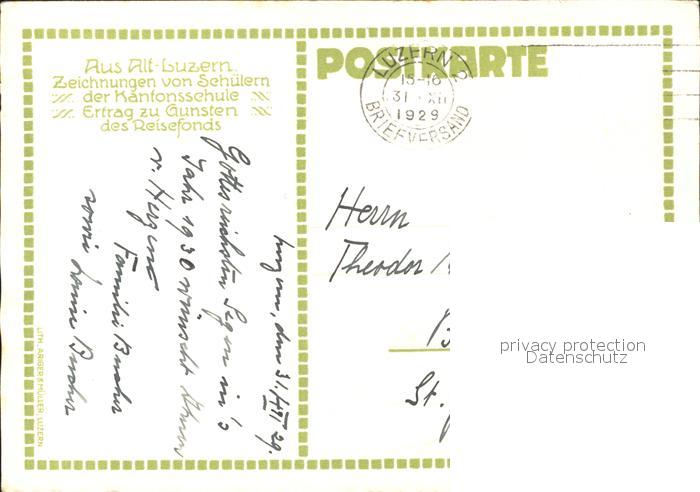 Aus Alt-Luzern.
Zeichnungen von Schülern
der Kantonsschule
Ertrag zu Gunsten
des Reisefonds
POSTKARTE
LUZERN 2
15-16
31. XII
1929
BRIEFVERSAND
Luzern, den 31. XII 29.
Gottes reichsten Segen in's
Jahr 1930 wünscht Ihnen
v. Herzen
Familie Bucher
sowie Bucher
Herrn
Theodor
St.
LITH. ARIGER & MÜLLER LUZERN
privacy protection
Datenschutz